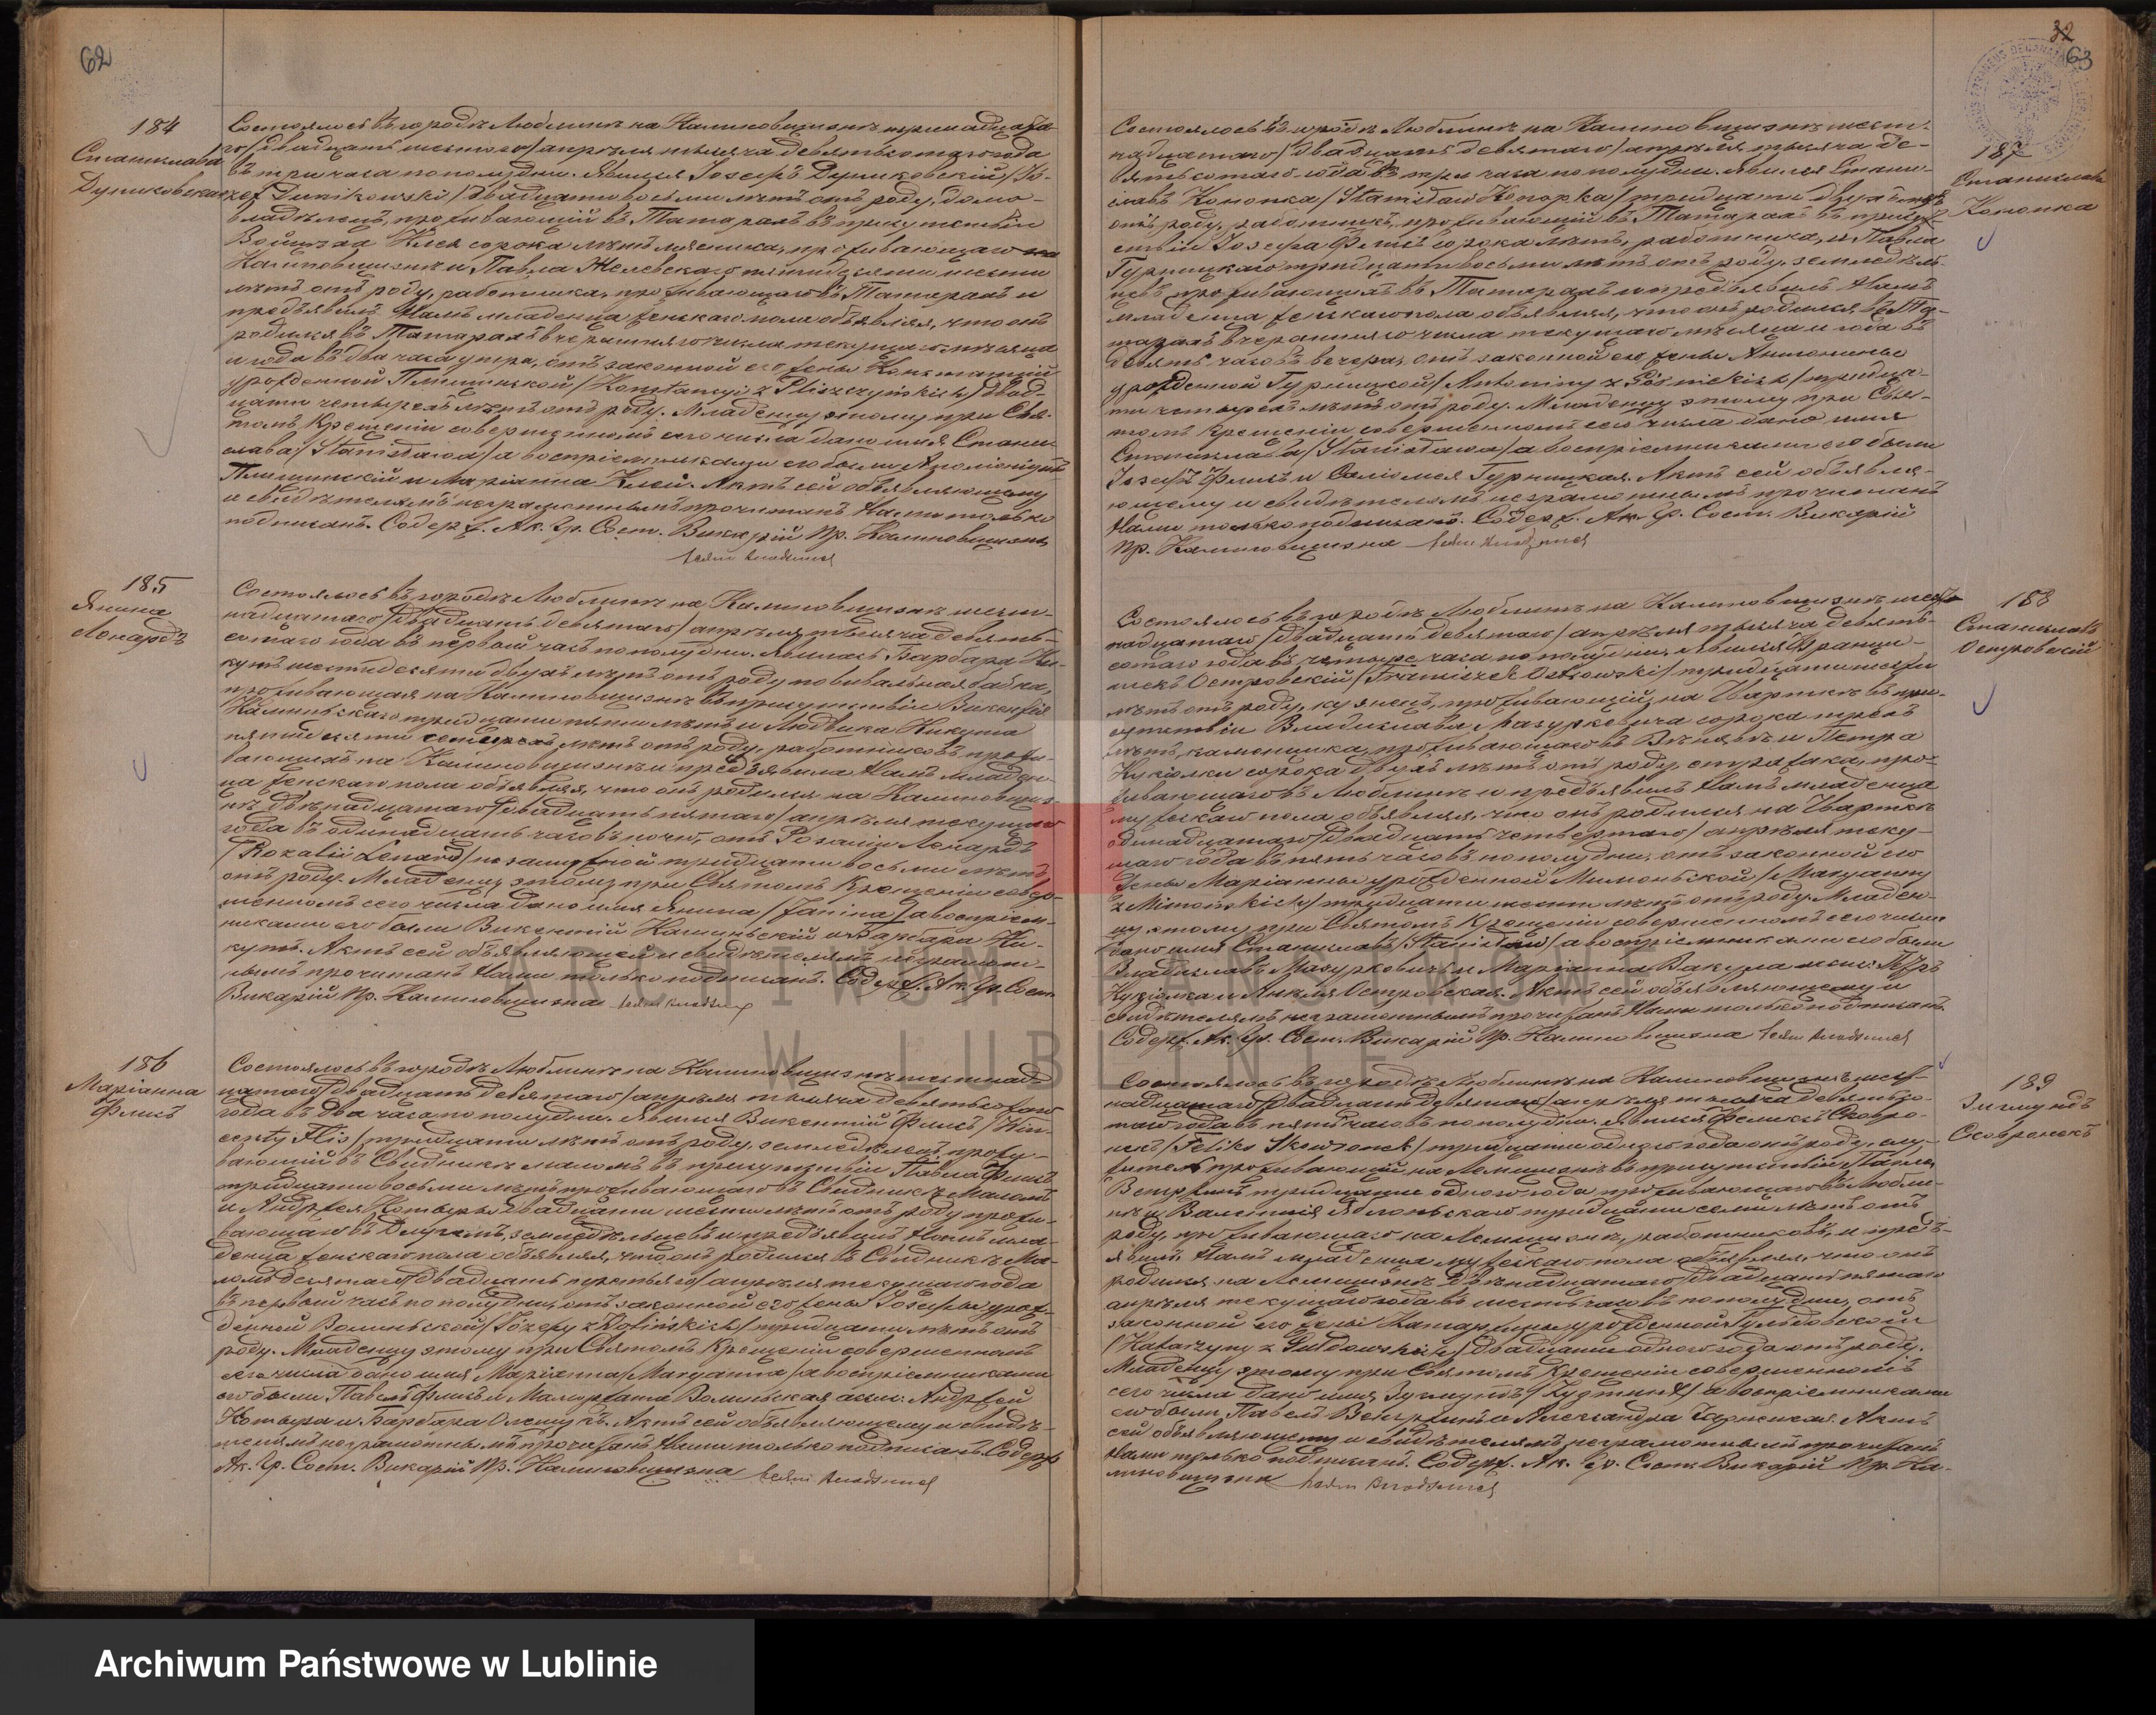 62
184
Станислава
Дуниковская
Состоялось въ городѣ Люблинѣ на Калиновщизнѣ тринадцата-
го /двадцать шестого/ апрѣля тысяча девятьсотаго года
въ три часа пополудни. Явился Іосефъ Дуниковскій /Jó-
zef Dunikowski/ двадцати восьми лѣтъ отъ роду, домо-
владѣлецъ, проживающій въ Татарахъ въ присутствіи
Войцѣха Клея сорока лѣтъ мясника, проживающаго на
Калиновщизнѣ и Павла Желевскаго пятидесяти шести
лѣтъ отъ роду, работника, проживающаго въ Татарахъ и
предъявилъ Намъ младенца женскаго пола объявляя, что онъ
родился въ Татарахъ вчерашняго числа текущаго мѣсяца
и года въ два часа утра, отъ законной его жены Констанціи
урожденной Плищинской /Konstancyi z Pliszczyńskich/ двад-
цати четырехъ лѣтъ отъ роду. Младенцу этому при Свя-
томъ Крещеніи совершенномъ сего числа дано имя Станис-
лава /Stanisława/ а воспріемниками его были Аполіонарій
Плищинскій и Маріанна Клей. Актъ сей объявляющему
и свидѣтелямъ неграмотнымъ прочитанъ Нами только
подписанъ. Содерж. Ак. Гр. Сост. Викарій Пр. Калиновщизна
185
Янина
Ленардъ
Состоялось въ городѣ Люблинѣ на Калиновщизнѣ шест-
надцатаго /двадцать девятаго/ апрѣля тысяча девять-
сотаго года въ первый часъ пополудни. Явилась Барбара Ки-
кутъ шестидесяти двухъ лѣтъ отъ роду повивальная бабка,
проживающая на Калиновщизнѣ въ присутствіи Викентія
Каминьскаго тридцати пяти лѣтъ и Людвика Никута
пятидесяти четырехъ лѣтъ отъ роду, работниковъ прожи-
вающихъ на Калиновщизнѣ и предъявила Намъ младен-
ца женскаго пола объявляя, что онъ родился на Калиновщиз-
нѣ двѣнадцатаго /двадцать пятаго/ апрѣля текущаго
года въ одинадцать часовъ ночи, отъ Розаліи Ленардъ
/Rozalii Lenard/ незамужной тридцати восьми лѣтъ
отъ роду. Младенцу этому при Святомъ Крещеніи совер-
шенномъ сего числа дано имя Янина /Janina/ а воспріем-
никами его были Викентій Каминьскій и Барбара Ки-
кутъ. Актъ сей объявляющей и свидѣтелямъ неграмот-
нымъ прочитанъ Нами только подписанъ. Содерж. Ак. Гр. Сост.
Викарій Пр. Калиновщизна
186
Маріанна
Флисъ
Состоялось въ городѣ Люблинѣ на Калиновщизнѣ шестнад-
цатаго /двадцать девятаго/ апрѣля тысяча девятьсотаго
года въ два часа пополудни. Явился Викентій Флисъ /Win-
centy Flis/ тридцати лѣтъ отъ роду, земледѣлецъ, прожи-
вающій въ Свидникѣ маломъ въ присутствіи Павла Флисъ
тридцати восьми лѣтъ проживающаго въ Свидникѣ Маломъ
и Андржея Котыры двадцати шести лѣтъ отъ роду прожи-
вающаго въ Длугемъ, земледѣльцевъ и предъявилъ Намъ мла-
денца женскаго пола объявляя, что онъ родился въ Свидникѣ Ма-
ломъ десятаго /двадцать третьяго/ апрѣля текущаго года
въ первый часъ пополудни, отъ законной его жены Іосефы урож-
денной Волиньской /Józefy z Wolińskich/ тридцати лѣтъ отъ
роду. Младенцу этому при Святомъ Крещеніи совершенномъ
сего числа дано имя Маріанна /Maryanna/ а воспріемниками
его были Павелъ Флисъ и Малгржата Волиньская ассис. Андржей
Котыра и Барбара Олещукъ. Актъ сей объявляющему и свидѣ-
телямъ неграмотнымъ прочитанъ Нами только подписанъ. Содерж.
Ак. Гр. Сост. Викарій Пр. Калиновщизна
32
63
187
Станислава
Конопка
Состоялось въ городѣ Люблинѣ на Калиновщизнѣ шест-
надцатаго /двадцать девятаго/ апрѣля тысяча де-
вятьсотаго года въ три часа пополудни. Явился Стани-
славъ Конопка /Stanisław Konopka/ тридцати двухъ лѣтъ
отъ роду, работникъ, проживающій въ Татарахъ въ присут-
ствіи Іосефа Флисъ сорока лѣтъ, работника, и Павла
Гурницкаго тридцати восьми лѣтъ отъ роду, земледѣль-
цевъ проживающихъ въ Татарахъ и предъявилъ Намъ
младенца женскаго пола объявляя, что онъ родился въ Та-
тарахъ вчерашняго числа текущаго мѣсяца и года въ
девять часовъ вечера, отъ законной его жены Антонины
урожденной Гурницкой /Antoniny z Górnickich/ тридца-
ти четырехъ лѣтъ отъ роду. Младенцу этому при Свя-
томъ Крещеніи совершенномъ сего числа дано имя
Станислава /Stanisława/ а воспріемниками его были
Іосефъ Флисъ и Саломея Гурницкая. Актъ сей объявля-
ющему и свидѣтелямъ неграмотнымъ прочитанъ
Нами только подписанъ. Содерж. Ак. Гр. Сост. Викарій
Пр. Калиновщизна
188
Станиславъ
Островскій
Состоялось въ городѣ Люблинѣ на Калиновщизнѣ шест-
надцатаго /двадцать девятаго/ апрѣля тысяча девять-
сотаго года въ четыре часа пополудни. Явился Франци-
шекъ Островскій /Franciszek Ostrowski/ тридцати шести
лѣтъ отъ роду, кузнецъ, проживающій на Чвартекъ въ при-
сутствіи Владислава Мазуркевича сорока трехъ
лѣтъ, каменщика, проживающаго въ и Петра
Кукіолки сорока двухъ лѣтъ отъ роду, стражака, про-
живающаго въ Люблинѣ и предъявилъ Намъ младенца
мужескаго пола объявляя, что онъ родился на Чвартекъ
одинадцатаго /двадцать четвертаго/ апрѣля теку-
щаго года въ пять часовъ пополудни, отъ законной его
жены Маріанны урожденной Мимоньской /Maryanny
z Mimońskich/ тридцати шести лѣтъ отъ роду. Младен-
цу этому при Святомъ Крещеніи совершенномъ сего числа
дано имя Станиславъ /Stanisław/ а воспріемниками его были
Владиславъ Мазуркевичъ и Маріанна Вакула ассис. Петръ
Кукіолка и Анеля Островская. Актъ сей объявляющему и
свидѣтелямъ неграмотнымъ прочитанъ Нами только подписанъ.
Содерж. Ак. Гр. Сост. Викарій Пр. Калиновщизна
189
Зигмундъ
Сковронекъ
Состоялось въ городѣ Люблинѣ на Калиновщизнѣ шест-
надцатаго /двадцать девятаго/ апрѣля тысяча девятьсо-
таго года въ пять часовъ пополудни. Явился Феликсъ Сковро-
некъ /Feliks Skowronek/ тридцати одного года отъ роду, слу-
житель проживающій на Лемщизнѣ въ присутствіи Павла
Венгржинъ тридцати одного года проживающаго въ Любли-
нѣ и Валентія Яблоньскаго тридцати семи лѣтъ отъ
роду, проживающаго на Лемщизнѣ, работниковъ, и предъ-
явилъ Намъ младенца мужескаго пола объявляя, что онъ
родился на Лемщизнѣ двѣнадцатаго /двадцать пятаго/
апрѣля текущаго года въ шесть часовъ пополудни, отъ
законной его жены Катаржины урожденной Гульдовской
/Katarzyny z Guldowskich/ двадцати одного года отъ роду.
Младенцу этому при Святомъ Крещеніи совершенномъ
сего числа дано имя Зигмундъ /Zygmunt/ а воспріемниками
его были Павелъ Венгржинъ и Александра Чарнецкая. Актъ
сей объявляющему и свидѣтелямъ неграмотнымъ прочитанъ
Нами только подписанъ. Содерж. Ак. Гр. Сост. Викарій Пр. Ка-
линовщизна
ARCHIWUM PAŃSTWOWE
W LUBLINIE
Archiwum Państwowe w Lublinie